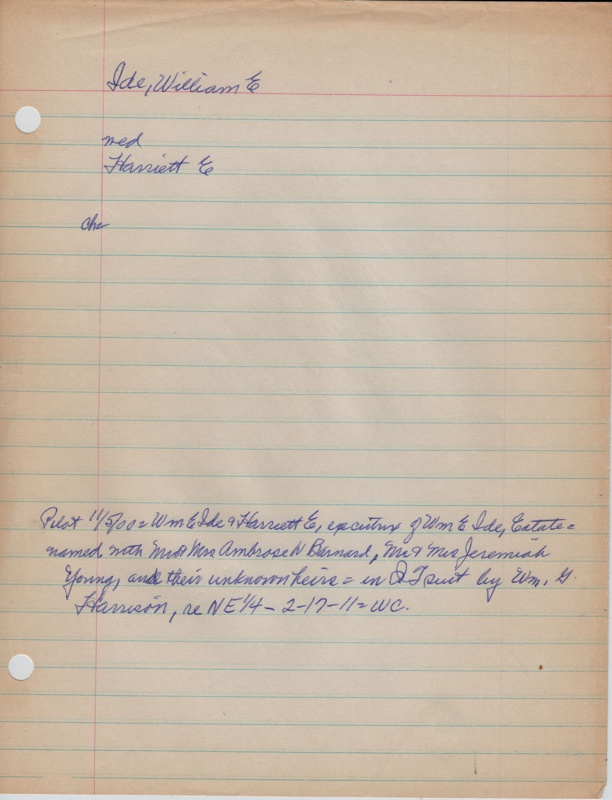 Ide, William E
med
Harriett E
Ch-
Pilot 11/5/00 = Wm E Ide & Harriett E, executrix of Wm E Ide, Estate =
named with Mr & Mrs Ambrose N Barnard, Mr & Mrs Jeremiah
Young, and their unknown heirs = in QT suit by Wm. G.
Harrison, re NE 1/4 - 2-17-11 = WC.